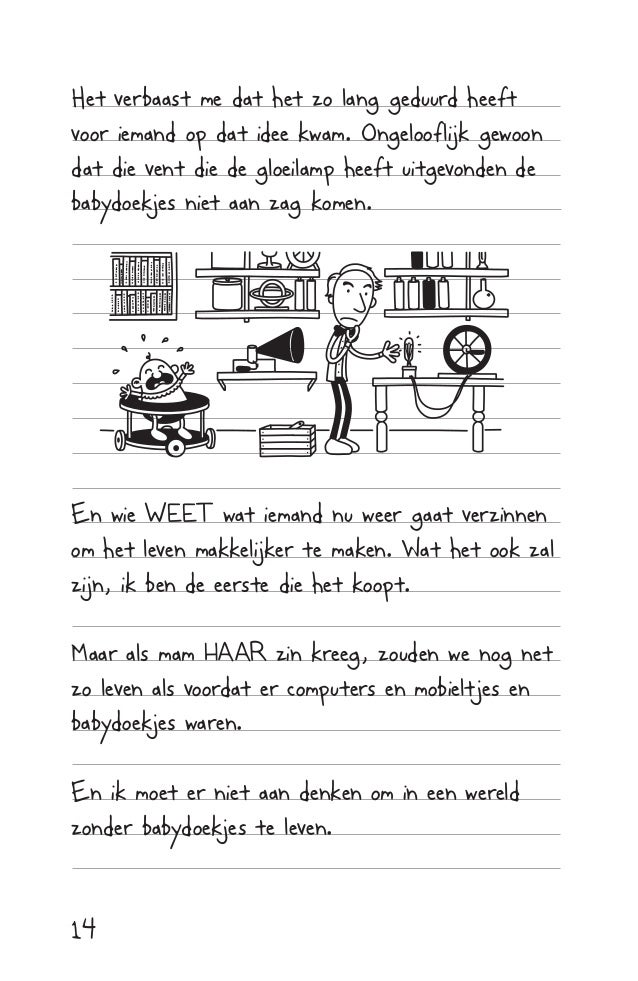 Het verbaast me dat het zo lang geduurd heeft
voor iemand op dat idee kwam. Ongelooflijk gewoon
dat die vent die de gloeilamp heeft uitgevonden de
babydoekjes niet aan zag komen.
En wie WEET wat iemand nu weer gaat verzinnen
om het leven makkelijker te maken. Wat het ook zal
zijn, ik ben de eerste die het koopt.
Maar als mam HAAR zin kreeg, zouden we nog net
zo leven als voordat er computers en mobieltjes en
babydoekjes waren.
En ik moet er niet aan denken om in een wereld
zonder babydoekjes te leven.
14